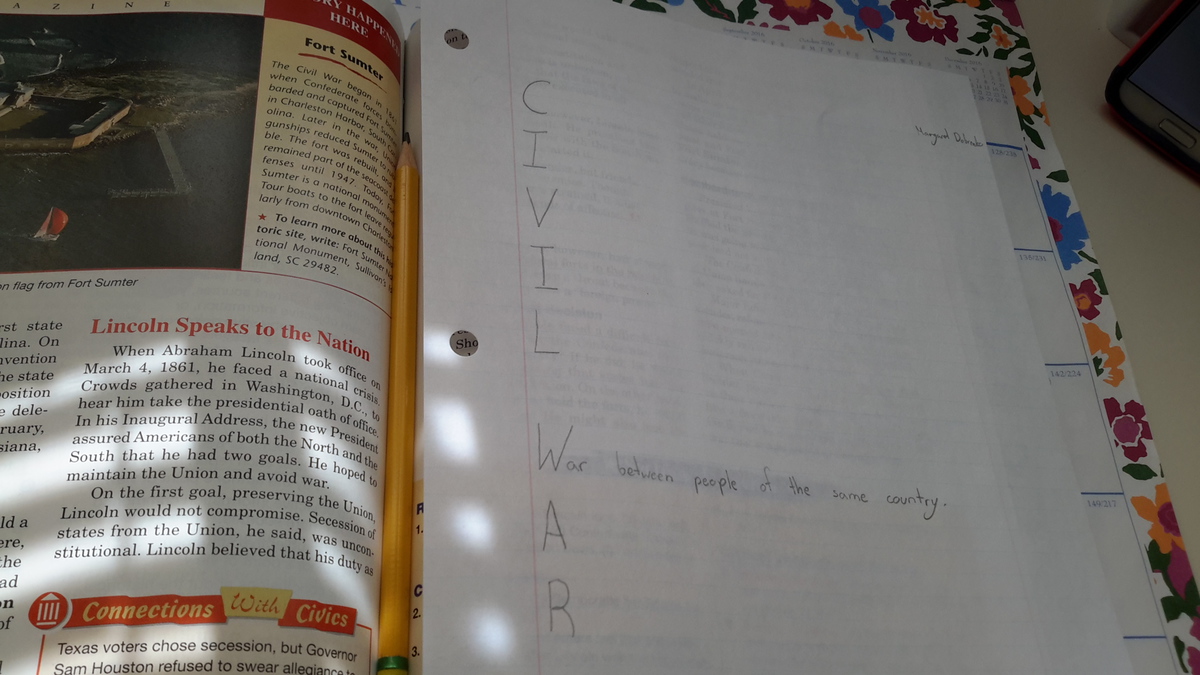 A Z I N E
HERE
Fort Sumter
The Civil War began in
when Confederate forces
barded and captured Fort
in Charleston Harbor, South
olina. Later in the war,
gunships reduced Sumter to
ble. The fort was rebuilt and
remained part of the seacoast
fenses until 1947. Today,
Sumter is a national monument.
Tour boats to the fort leave
larly from downtown
★ To learn more about this
toric site, write: Fort Sumter
tional Monument, Sullivan's
land, SC 29482.
flag from Fort Sumter
rst state
lina. On
nvention
he state
position
e dele-
ruary,
siana,
Lincoln Speaks to the Nation
When Abraham Lincoln took office on
March 4, 1861, he faced a national crisis.
Crowds gathered in Washington, D.C., to
hear him take the presidential oath of office.
In his Inaugural Address, the new President
assured Americans of both the North and the
South that he had two goals. He hoped to
maintain the Union and avoid war.
On the first goal, preserving the Union,
Lincoln would not compromise. Secession of
states from the Union, he said, was uncon-
stitutional. Lincoln believed that his duty as
ld a
ere,
the
ad
on
of
Connections With Civics
Texas voters chose secession, but Governor
Sam Houston refused to swear allegiance to
R
1.
C
2.
3.
Sho
Margaret
C
I
V
I
L
War between people of the same country.
A
R
128/238
135/231
142/224
149/217